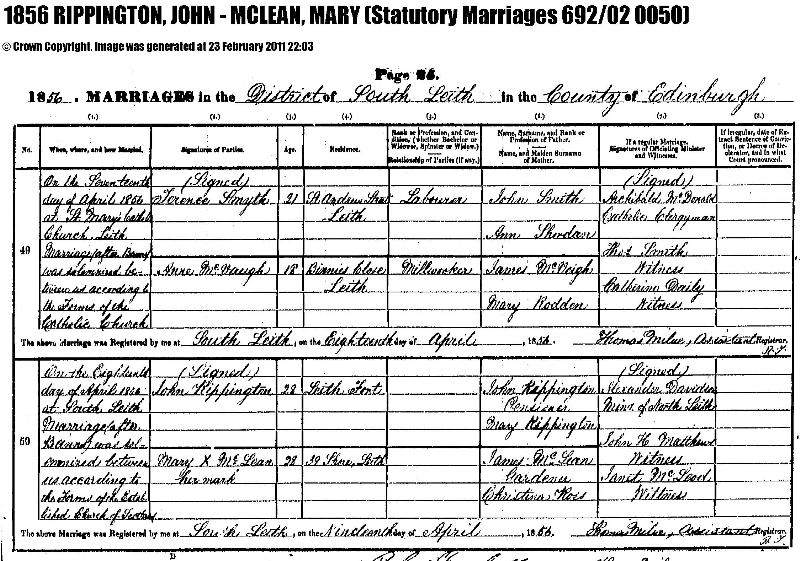 1856 RIPPINGTON, JOHN - MCLEAN, MARY (Statutory Marriages 692/02 0050)
© Crown Copyright. Image was generated at 23 February 2011 22:03
Page 25.
1856. MARRIAGES in the District of South Leith in the County of Edinburgh
(1.) (2.) (3.) (4.) (5.) (6.) (7.) (8.)
No. When, where, and how Married. Signatures of Parties. Age. Residence. Rank or Profession, and Condition, (whether Bachelor or Widower, Spinster or Widow.) Relationship of Parties (if any.) Name, Surname, and Rank or Profession of Father. Name, and Maiden Surname of Mother. If a regular Marriage, Signatures of Officiating Minister and Witnesses. If irregular, date of Extract Sentence of Conviction, or Decree of Declarator, and in what Court pronounced.
49
On the Seventeenth
day of April 1856
at St. Mary's Catholic
Church, Leith
Marriage (after Banns)
was solemnized be-
tween us according to
the Forms of the
Catholic Church
(Signed)
Terence Smyth
Anne McVaugh
21
18
St. Andrew Street
Leith
Binnies Close
Leith
Labourer
Millworker
John Smith
Ann
James McVeigh
Mary Rodden
(Signed)
Archibald McDonald
Catholic Clergyman
Thos. Smith
Witness
Catherine Daily
Witness
The above Marriage was Registered by me at South Leith, on the Eighteenth day of April, 1856. Thomas Milne, Assistant Registrar.
50
On the Eighteenth
day of April 1856
at South Leith
Marriage (after
Banns) was sol-
emnized between
us according to
the Forms of the Estab-
lished Church of Scotland
(Signed)
John Rippington
Mary X McLean
her mark
23
28
Leith Fort
39 Shore, Leith
John Rippington
Pensioner
Mary Rippington
James McLean
Gardener
Christina Ross
(Signed)
Alexander Davidson
Minr. of North Leith
John H. Matthews
Witness
Janet McLeod
Wittness
The above Marriage was Registered by me at South Leith, on the Nineteenth day of April, 1856. Thomas Milne, Assistant Registrar.